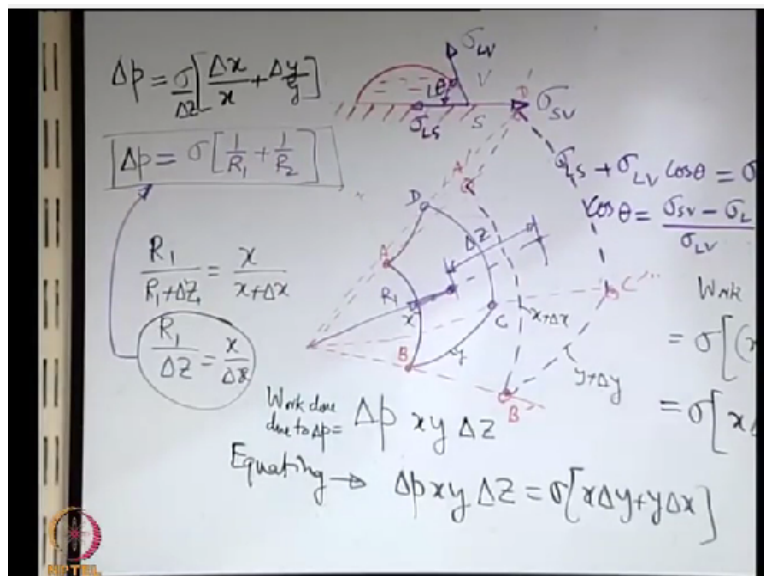 Δp = σ/ΔZ [Δx/x + Δy/y]
Δp = σ [1/R₁ + 1/R₂]
R₁/(R₁+ΔZ) = x/(x+Δx)
R₁/ΔZ = x/Δx
σ_LV
V
θ
L
S
σ_SV
σ_LS
σ_LS + σ_LV cosθ = σ
cosθ = (σ_SV − σ_L)/σ_LV
A'
D'
D
A
ΔZ
R₁
x
C
x+Δx
C'
B
y
y+Δy
B'
Work
= σ[(x
= σ[xΔ
Work done
due to Δp = Δp xy ΔZ
Equating → Δp xy ΔZ = σ[xΔy+yΔx]
NPTEL